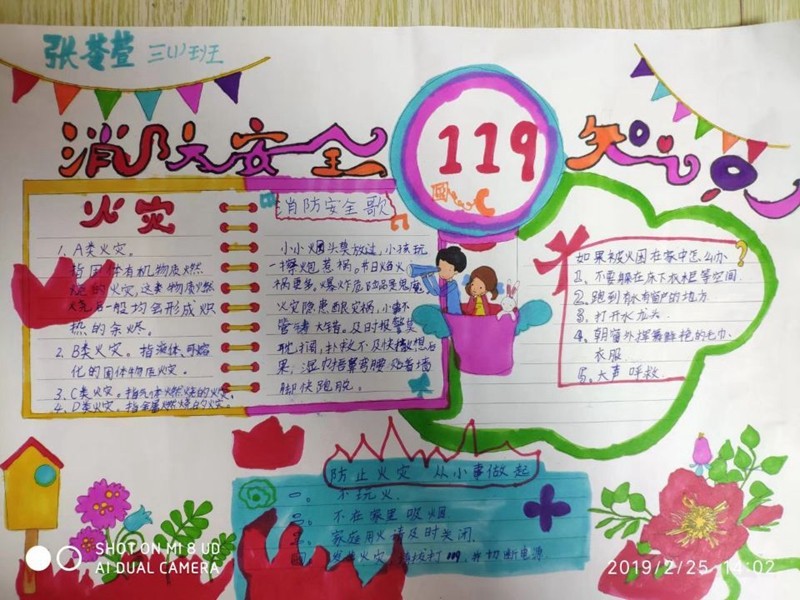 张萱 三(1)班
消防大安全
119
知识
火灾
1. A类火灾。
指固体有机物质燃
烧的火灾,这类物质燃
烧后一般均会形成炽
热的余烬。
2. B类火灾。指液体可熔
化的固体物质火灾。
3. C类火灾。指气体燃烧的火灾。
4. D类火灾。指金属燃烧的火灾。
消防安全歌
小小烟头莫放过,小孩玩
一擦炮惹祸。节日焰火
祸更多。爆炸危险品是鬼魔
火灾隐患酿灾祸,小事不
管大。及时报警莫
耽搁,扑救不及快撤
果,湿巾捂鼻弯腰墙
脚快跑脱。
如果被火困在家中怎么办?
1、不要躲在床下衣柜等空间
2、跑到有水有窗户的地方
3、打开水龙头
4、朝窗外挥舞鲜艳的毛巾、
衣服
5、大声呼救
防止火灾 从小事做起
一。 不玩火.
不在家里吸烟
家庭用火请及时关闭.
火, 拨打119,并切断电源
SHOT ON MI 8 UD
AI DUAL CAMERA
2019/2/25 14:02